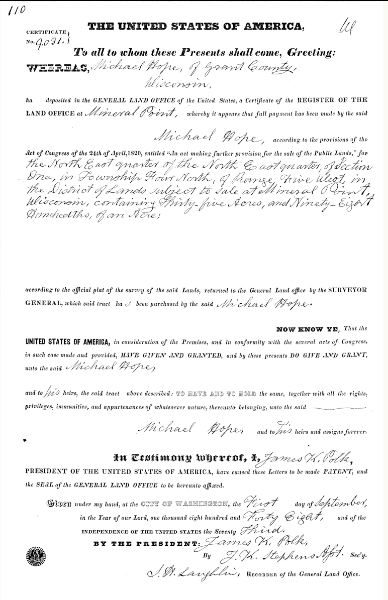 110
THE UNITED STATES OF AMERICA,
CERTIFICATE
No. 9031.
To all to whom these Presents shall come, Greeting:
WHEREAS, Michael Hope, of Grant County,
Wisconsin,
ha deposited in the GENERAL LAND OFFICE of the United States, a Certificate of the REGISTER OF THE
LAND OFFICE at Mineral Point, whereby it appears that full payment has been made by the said
Michael Hope, according to the provisions of the
Act of Congress of the 24th of April, 1820, entitled "An act making further provision for the sale of the Public Lands," for
the North East quarter of the North East quarter of Section
One, in Township Four North, of Range Five West, in
the District of Lands subject to sale at Mineral Point,
Wisconsin, containing Thirty five Acres, and Ninety-Eight
Hundredths, of an Acre;
according to the official plat of the survey of the said Lands, returned to the General Land Office by the SURVEYOR
GENERAL, which said tract has been purchased by the said Michael Hope.
NOW KNOW YE, That the
UNITED STATES OF AMERICA, in consideration of the Premises, and in conformity with the several acts of Congress,
in such case made and provided, HAVE GIVEN AND GRANTED, and by these presents DO GIVE AND GRANT,
unto the said Michael Hope
and to his heirs, the said tract above described: TO HAVE AND TO HOLD the same, together with all the rights,
privileges, immunities, and appurtenances of whatsoever nature, thereunto belonging, unto the said
Michael Hope and to his heirs and assigns forever.
In Testimony whereof, I, James K. Polk,
PRESIDENT OF THE UNITED STATES OF AMERICA, have caused these Letters to be made PATENT, and
the SEAL of the GENERAL LAND OFFICE to be hereunto affixed.
Given under my hand, at the CITY OF WASHINGTON, the First day of September,
in the Year of our Lord, one thousand eight hundred and Forty Eight, and of the
INDEPENDENCE OF THE UNITED STATES the Seventy Third.
BY THE PRESIDENT: James K. Polk,
By J. K. Stephens Asst. Sec'y.
S. H. Laughlin, RECORDER of the General Land Office.